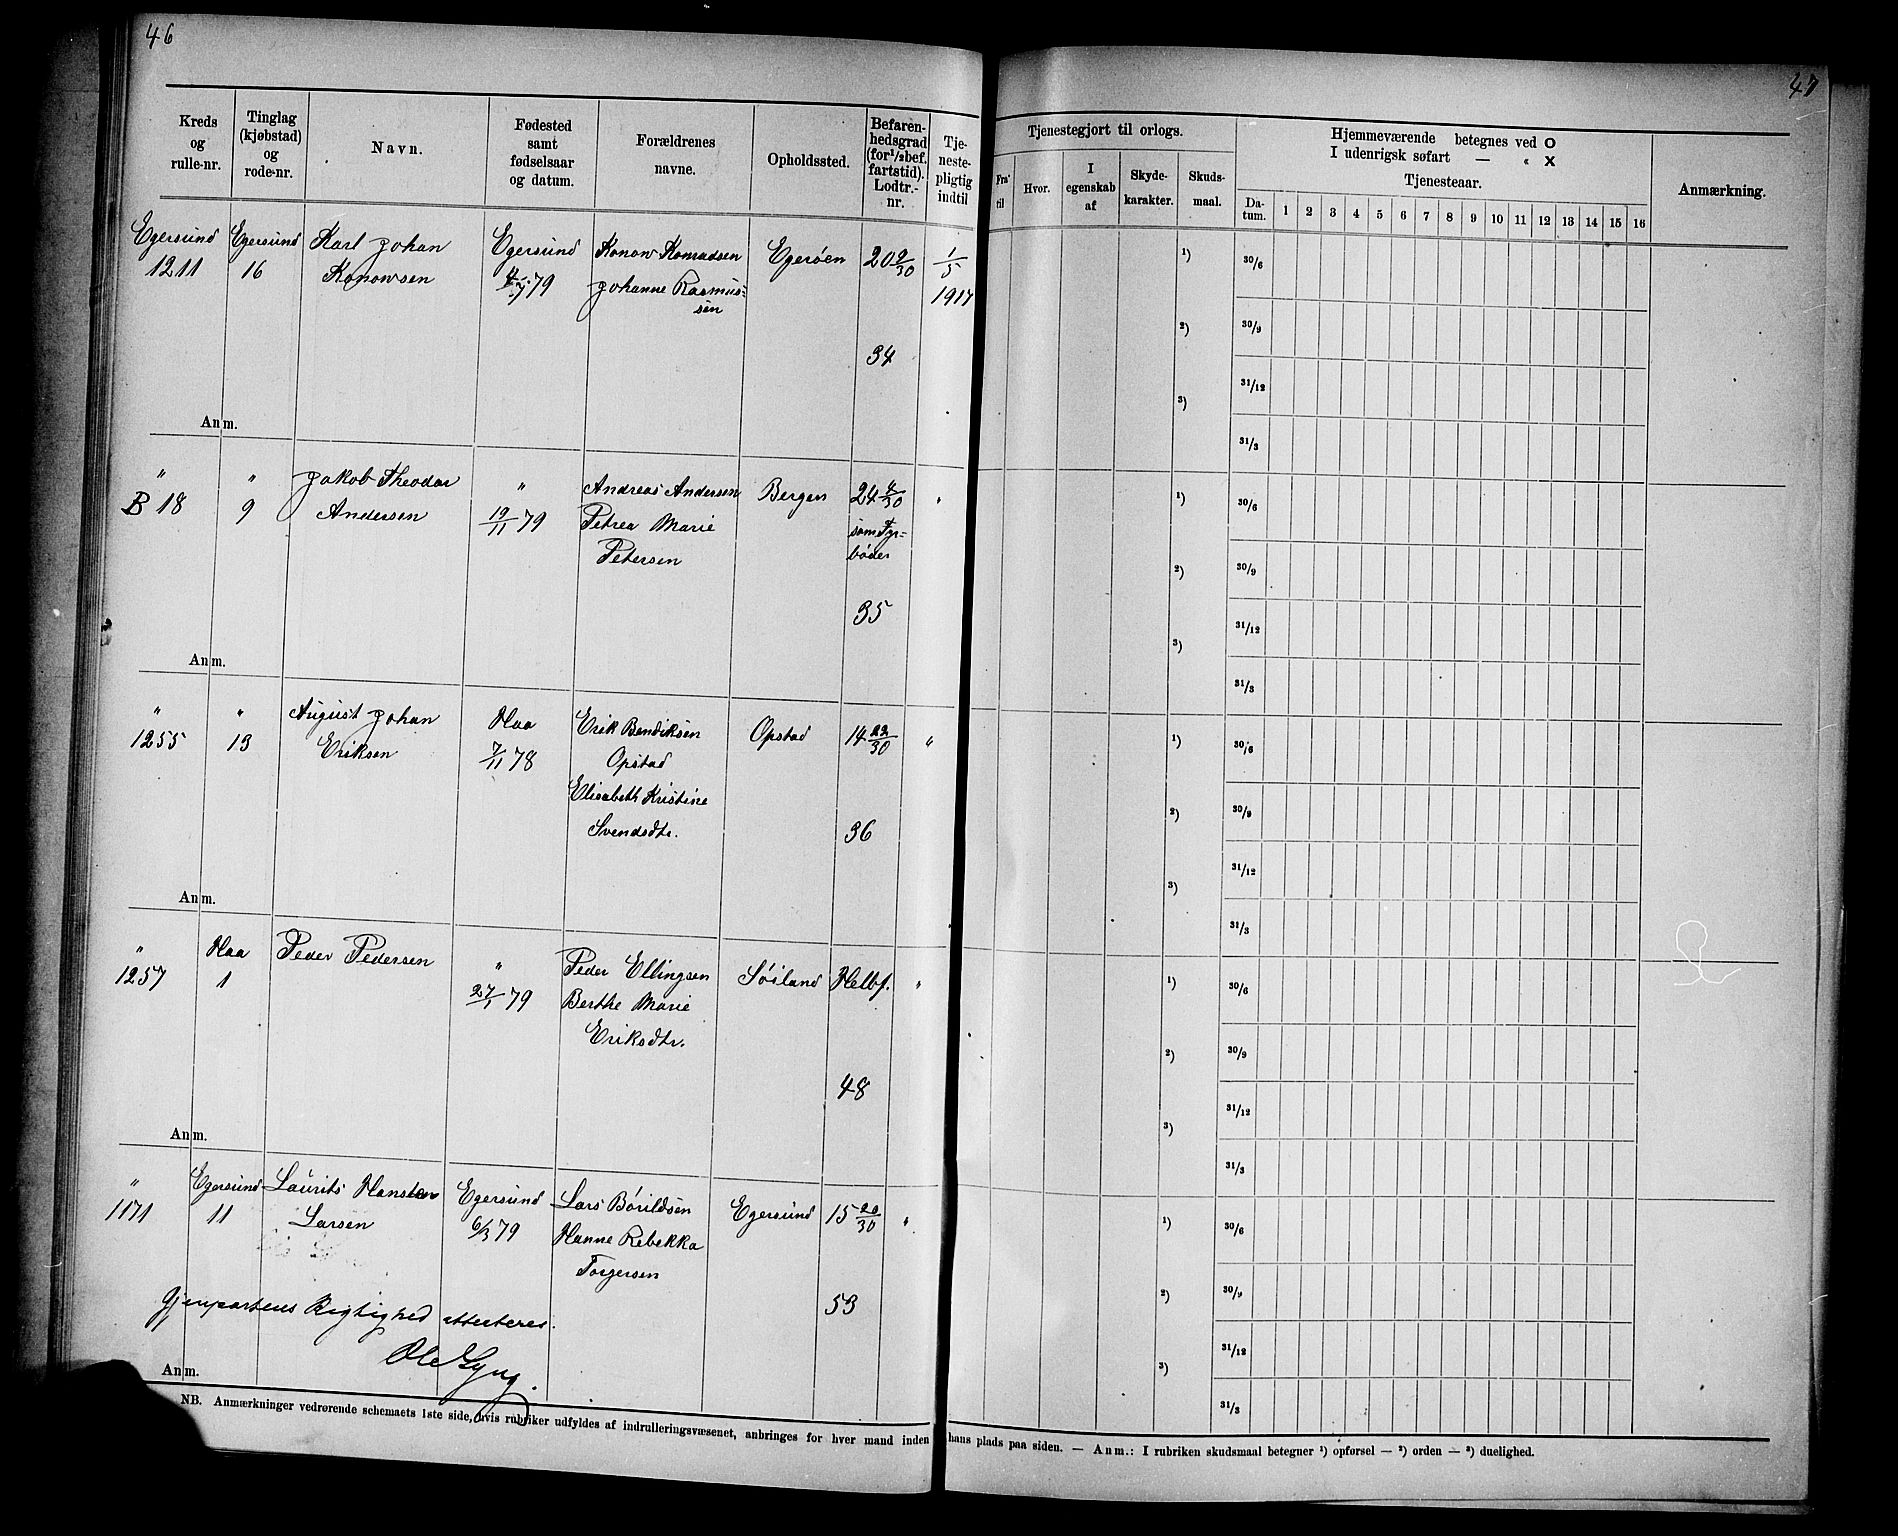 46
Kreds og rulle-nr.
Tinglag (kjøbstad) og rode-nr.
Navn.
Fødested samt fødselsaar og datum.
Forældrenes navne.
Opholdssted.
Befaren-hedsgrad (for 1/2 bef. fartstid). Lodtr.-nr.
Tje-neste-pligtig indtil
Egersund
1211
Egersund
16
Karl Johan
Konowsen
Egersund
79
Konow Konradsen
Johanne Rasmus=
sen
Egerøen
20 9/30
34
1/5
1917
Anm.
"
B 18
"
9
Jakob Theodor
Andersen
"
19/11 79
Andreas Andersen
Petrea Marie
Petersen
Bergen
24 4/30
som Fyr=
bøder
35
"
Anm.
"
1255
"
13
August Johan
Eriksen
Haa
7/11 78
Erik Bendiksen
Opstad
Elisabeth Kristine
Svendsdtr.
Opstad
14 23/30
36
"
Anm.
"
1257
Haa
1
Peder Pedersen
"
27/1 79
Peder Ellingsen
Berthe Marie
Eriksdtr.
Søiland
Helbf.
48
"
Anm.
"
1171
Egersund
11
Laurits Hansten
Larsen
Egersund
6/3 79
Lars Børildsen
Hanne Rebekka
Torgersen
Egersund
15 20/30
53
"
Gjenpartens Rigtighed attesteres.
Anm.
NB. Anmærkninger vedrørende schemaets 1ste side, hvis rubriker udfyldes af indrulleringsvæsenet, anbringes for hver mand inden
47
Tjenestegjort til orlogs.
Fra til
Hvor.
I egenskab af
Skyde-karakter.
Skuds-maal.
Hjemmeværende betegnes ved O
I udenrigsk søfart — " X
Tjenesteaar.
Da-tum.
1 2 3 4 5 6 7 8 9 10 11 12 13 14 15 16
Anmærkning.
1) 30/6
2) 30/9
31/12
3)
31/3
1) 30/6
2) 30/9
31/12
3)
31/3
1) 30/6
2) 30/9
31/12
3)
31/3
1) 30/6
2) 30/9
31/12
3)
31/3
1) 30/6
2) 30/9
31/12
3)
31/3
hans plads paa siden. — Anm.: I rubriken skudsmaal betegner 1) opførsel — 2) orden — 3) duelighed.